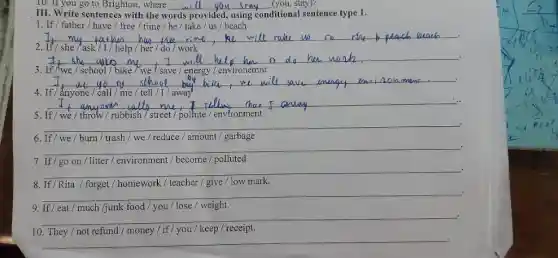 10. If you go to Brighton, where will you stay (you, stay)?
III. Write sentences with the words provided, using conditional sentence type 1.
1. If / father / have / free / time / he / take / us / beach
If my father has free time, he will take us to the beach.
2. If / she / ask / I / help / her / do / work
If she asks me, I will help her to do her work.
3. If / we / school / bike / we / save / energy / environment
If we go to school by bike, we will save energy environment.
4. If / anyone / call / me / tell / I / away
If anyone calls me, I tell that I away.
5. If / we / throw / rubbish / street / pollute / environment
6. If / we / burn / trash / we / reduce / amount / garbage
7. If / go on / litter / environment / become / polluted
8. If / Rita / forget / homework / teacher / give / low mark.
9. If / eat / much /junk food / you / lose / weight.
10. They / not refund / money / if / you / keep / receipt.